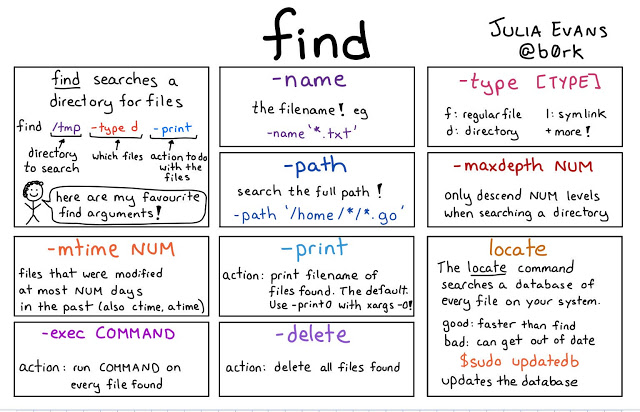 find
JULIA EVANS
@b0rk
find searches a
directory for files
find /tmp -type d -print
directory
to search
which files
action to do
with the
files
here are my favourite
find arguments!
-name
the filename! eg
-name '*.txt'
-path
search the full path!
-path '/home/*/*.go'
-type [TYPE]
f: regular file l: symlink
d: directory + more!
-maxdepth NUM
only descend NUM levels
when searching a directory
-mtime NUM
files that were modified
at most NUM days
in the past (also ctime, atime)
-print
action: print filename of
files found. The default.
Use -print0 with xargs -0!
locate
The locate command
searches a database of
every file on your system.
good: faster than find
bad: can get out of date
$sudo updatedb
updates the database
-exec COMMAND
action: run COMMAND on
every file found
-delete
action: delete all files found